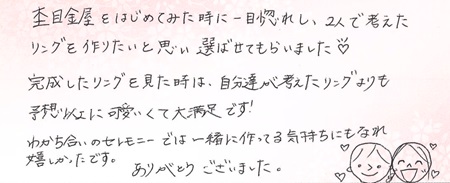 杢目金屋をはじめてみた時に一目惚れし、2人で考えた
リングを作りたいと思い選ばせてもらいました♡
完成したリングを見た時は、自分達が考えたリングよりも
予想以上に可愛いくて大満足です!
わかち合いのセレモニーでは一緒に作ってる気持ちにもなれ
嬉しかったです。
ありがとうございました。